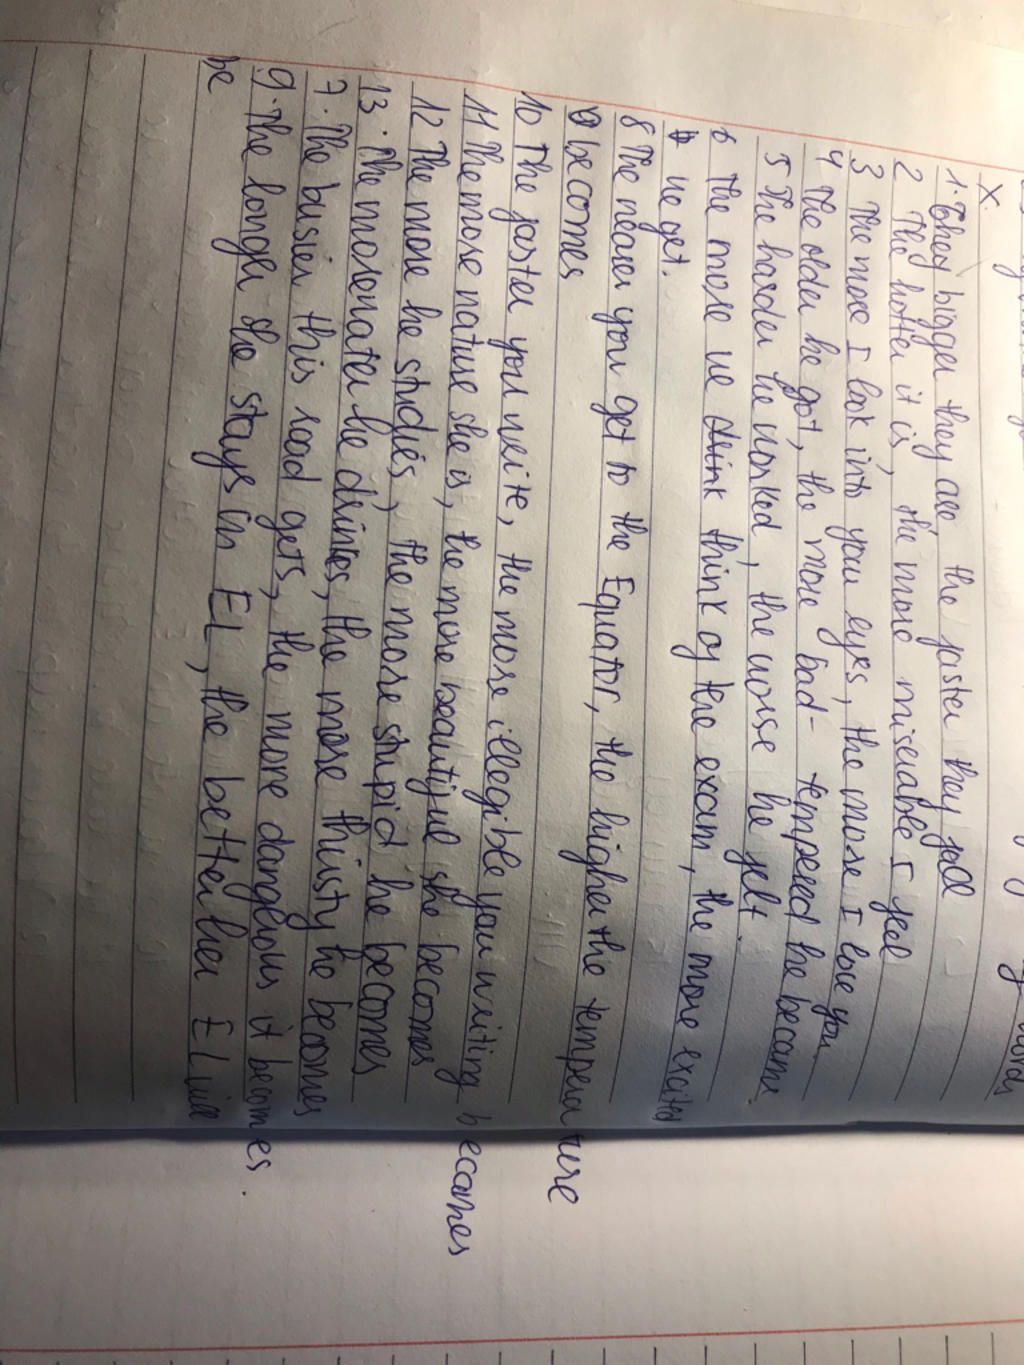 X.
1. They bigger they are, the faster they fall
2 The hotter it is, the more miserable I feel
3 The more I look into your eyes, the more I love you.
4 The older he got, the more bad-tempered he became
5 The harder he worked, the worse he felt.
6 The more we think of the exam, the more excited
we get.
8 The nearer you get to the Equator, the higher the temperature
becomes
10 The faster you write, the more illegible your writing becomes
11 The more nature she is, the more beautiful she becomes
12 The more he studies, the more stupid he becomes
13. The more water he drinks, the more thirsty he becomes
7. The busier this road gets, the more dangrious it becomes.
9. The longer she stays in EL, the better her EL will
be